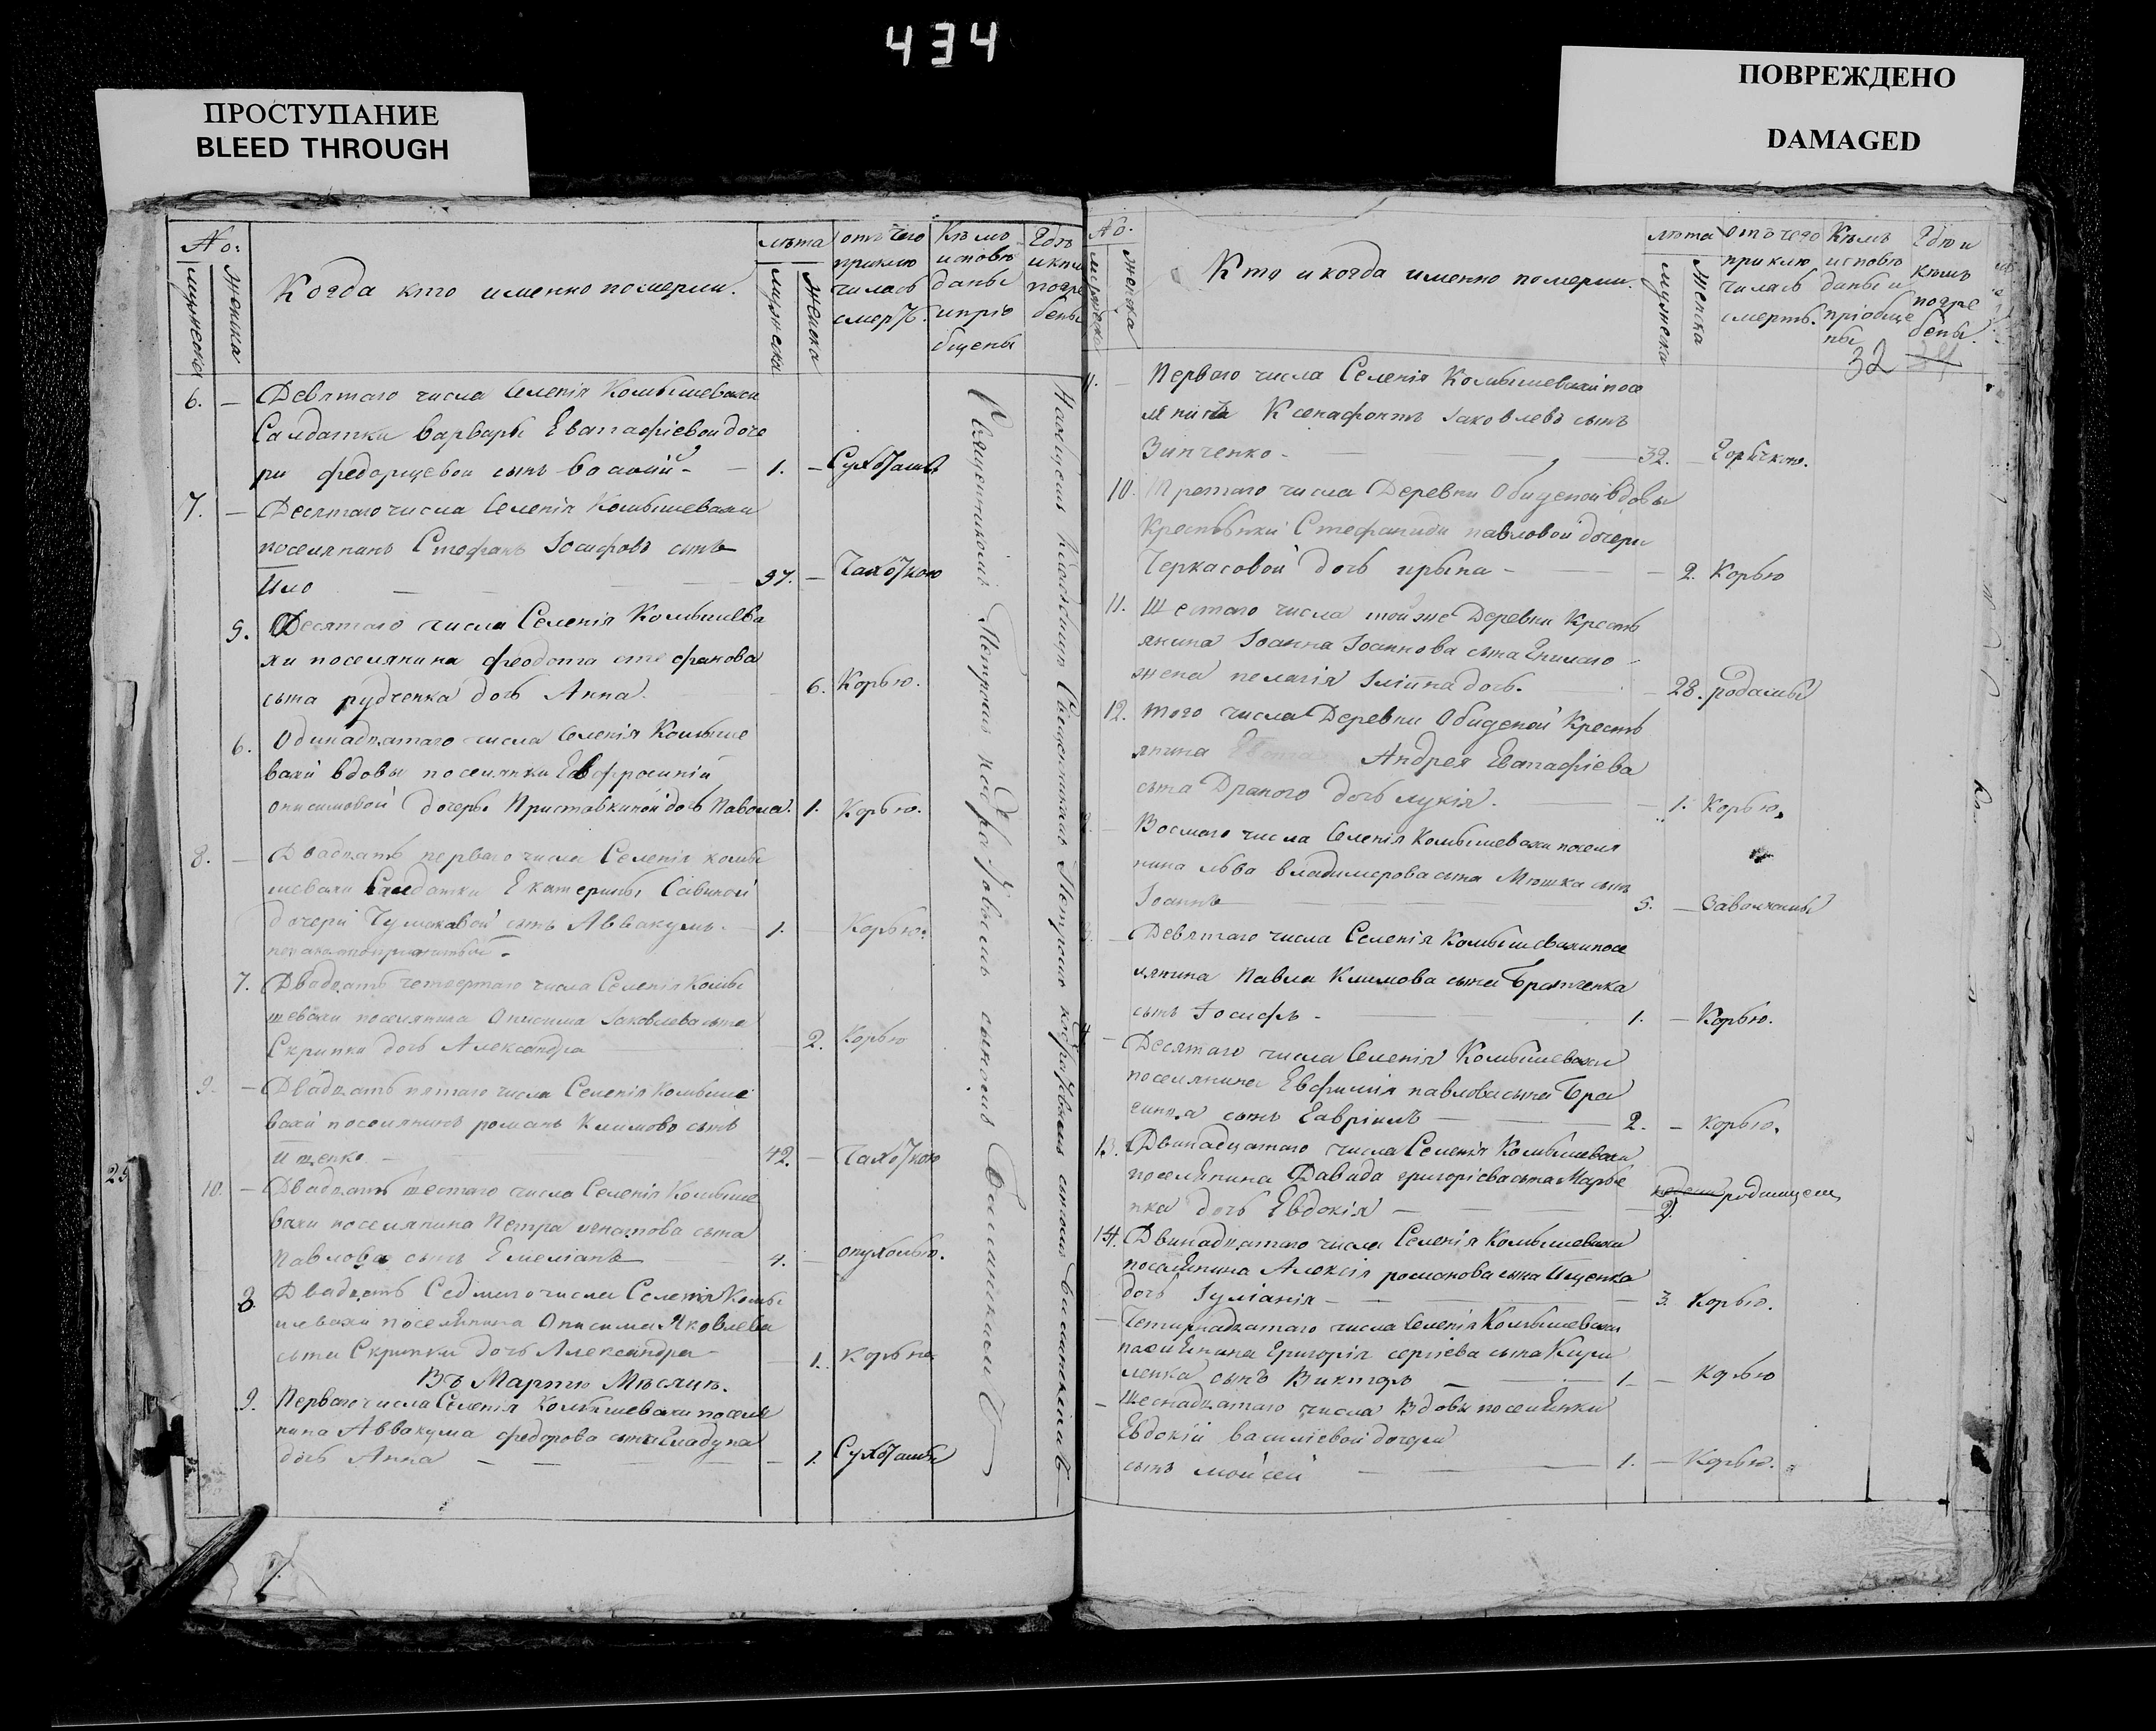 434
ПРОСТУПАНИЕ
BLEED THROUGH
ПОВРЕЖДЕНО
DAMAGED
No:
мужеска
женска
Когда кто именно померли.
лѣта
мужеска
женска
отъ чего приклю чилась смерть.
Кѣмъ исповѣ даны и пріо бщены
Гдѣ и кѣм погре бены
6. — Девятаго числа Селенія Комышевахи
Салдатки Варвары Евстафіевой доче
ри Федорцевой сынъ — 1. — Сухотами
7. — Десятаго числа Селенія Комышевахи
поселянинъ Стефанъ Іосифовъ сынъ
— 37. — Чахоткою
5. Десятаго числа Селенія Комышева
хи поселянина Феодота Стефанова
сына рудченка дочь Анна. 6. Корью.
6. Одинадцатаго числа Селенія Комыше
вахи вдовы поселянки Евфросиніи
Онисимовой дочери Приставкиной дочь 1. Корью.
8. — Двадцать перваго числа Селенія комы
шевахи Салдатки Екатерины Савиной
дочери Чумаковой сынъ Аввакумъ. — 1. — Корью.
7. Двадцать четвертаго числа Селенія Комы
шевахи поселянина Онисима Іаковлева сына
Скрипки дочь Александра 2. Корью
9. — Двадцать пятаго числа Селенія Комыше
вахи поселянинъ романъ Климовъ сынъ
Ищенко — 42. — Чахоткою
25
10. — Двадцать шестаго числа Селенія Комыше
вахи поселянина Петра игнатова сына
Павлова сынъ Емеліанъ 4. — опухолью.
8. Двадцать Седмаго числа Селенія Комы
шевахи поселянина Онисима Яковлева
сына Скрипки дочь Александра 1. Корью
Въ Мартѣ Мѣсяцѣ.
9. Перваго числа Селенія Комышевахи поселя
нина Аввакума федорова сына
дочь Анна — 1. Сухотами
Священникомъ Петромъ сыномъ
На общемъ кладбищѣ Священникомъ Петромъ сыномъ
No.
мужеска
женска
Кто и когда именно померли.
лѣта
мужеска
женска
отъ чего приклю чилась смерть.
Кѣмъ исповѣ даны и пріобще ны
Гдѣ и кѣмъ погре бены.
32 34
11. — Перваго числа Селенія Комышевахи посе
лянинъ Ксенафонтъ Іаковлевъ сынъ
Зинченко — 32. — Горячкою.
10. Третаго числа Деревни Обиденой вдовы
Крестьянки Стефаниды павловой дочери
Черкасовой дочь ирына — 2. Корью
11. Шестаго числа тойже Деревни Кресть
янина Іоанна Іоаннова сына
жена пелагія дочь. 28. родами
12. того числа Деревни Обиденой Кресть
янина Андрея Евстафіева
сына Драного дочь лукія. — 1. Корью,
— Восмаго числа Селенія Комышевахи поселя
нина льва владимерова сына Мошка сынъ
Іоаннъ 5. —
— Девятаго числа Селенія Комышевахи посе
лянина Павла Климова сына Братченка
сынъ Іосифъ — 1. — Корью.
— Десятаго числа Селенія Комышевахи
поселянина Евфимія павлова сына
сынъ Гавріилъ 2. — корью.
13. Двинадцатаго числа Селенія Комышевахи
поселянина Давида григоріева сына
нка дочь Евдокія — 2. родимцем
14. Двинадцатаго числа Селенія Комышевахи
поселянина Алексія романова сына Ищенка
дочь Іуліанія — 3. Корью.
— Четырнадцатаго числа Селенія Комышевахи
поселянина Григорія сергіева сына Кири
ленка сынъ Викторъ — 1. — Корью
— Шеснадцатаго числа вдовы поселянки
Евдокіи василіевой дочери
сынъ мойсей — 1. — Корью.